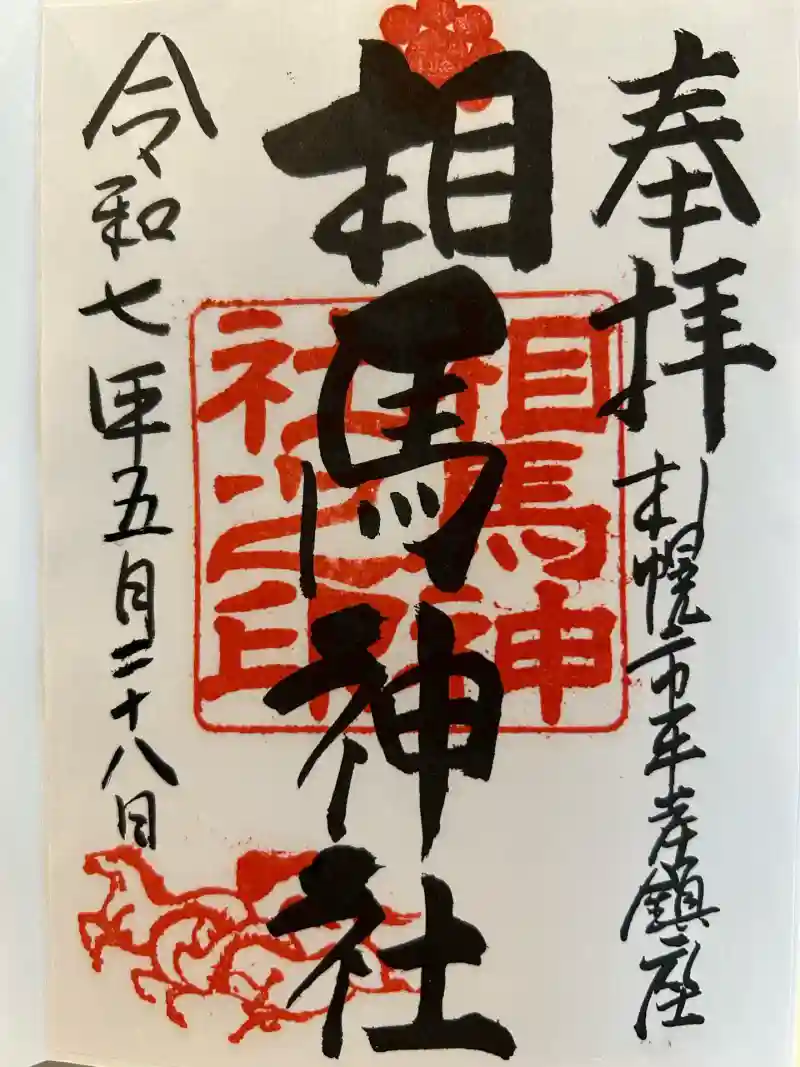 奉拝
札幌市平岸鎮座
相馬神社
相馬神
社之印
令和七年五月二十八日